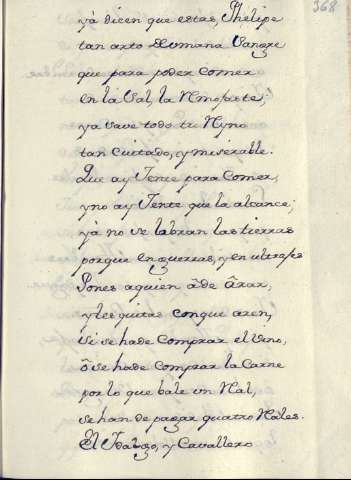 368
yà dicen que estas, Phelipe
tan arto de umana Sangre
que para poder comer
en la Sal, la
ya save todo tu Ryno
tan cuitado, y miserable.
Que ay Jente para Comer,
y no ay Jente que la alcance;
yà no se labran las tierras
porque en guerras, y en ultrajes
Pones aquien àde Àrar,
y les quitas con que aren,
si se hade Comprar el vino,
ò se hade Comprar la Carne
por lo que bale un Rl,
se han de pagar quatro Rles.
El Idalgo, y Cavallero